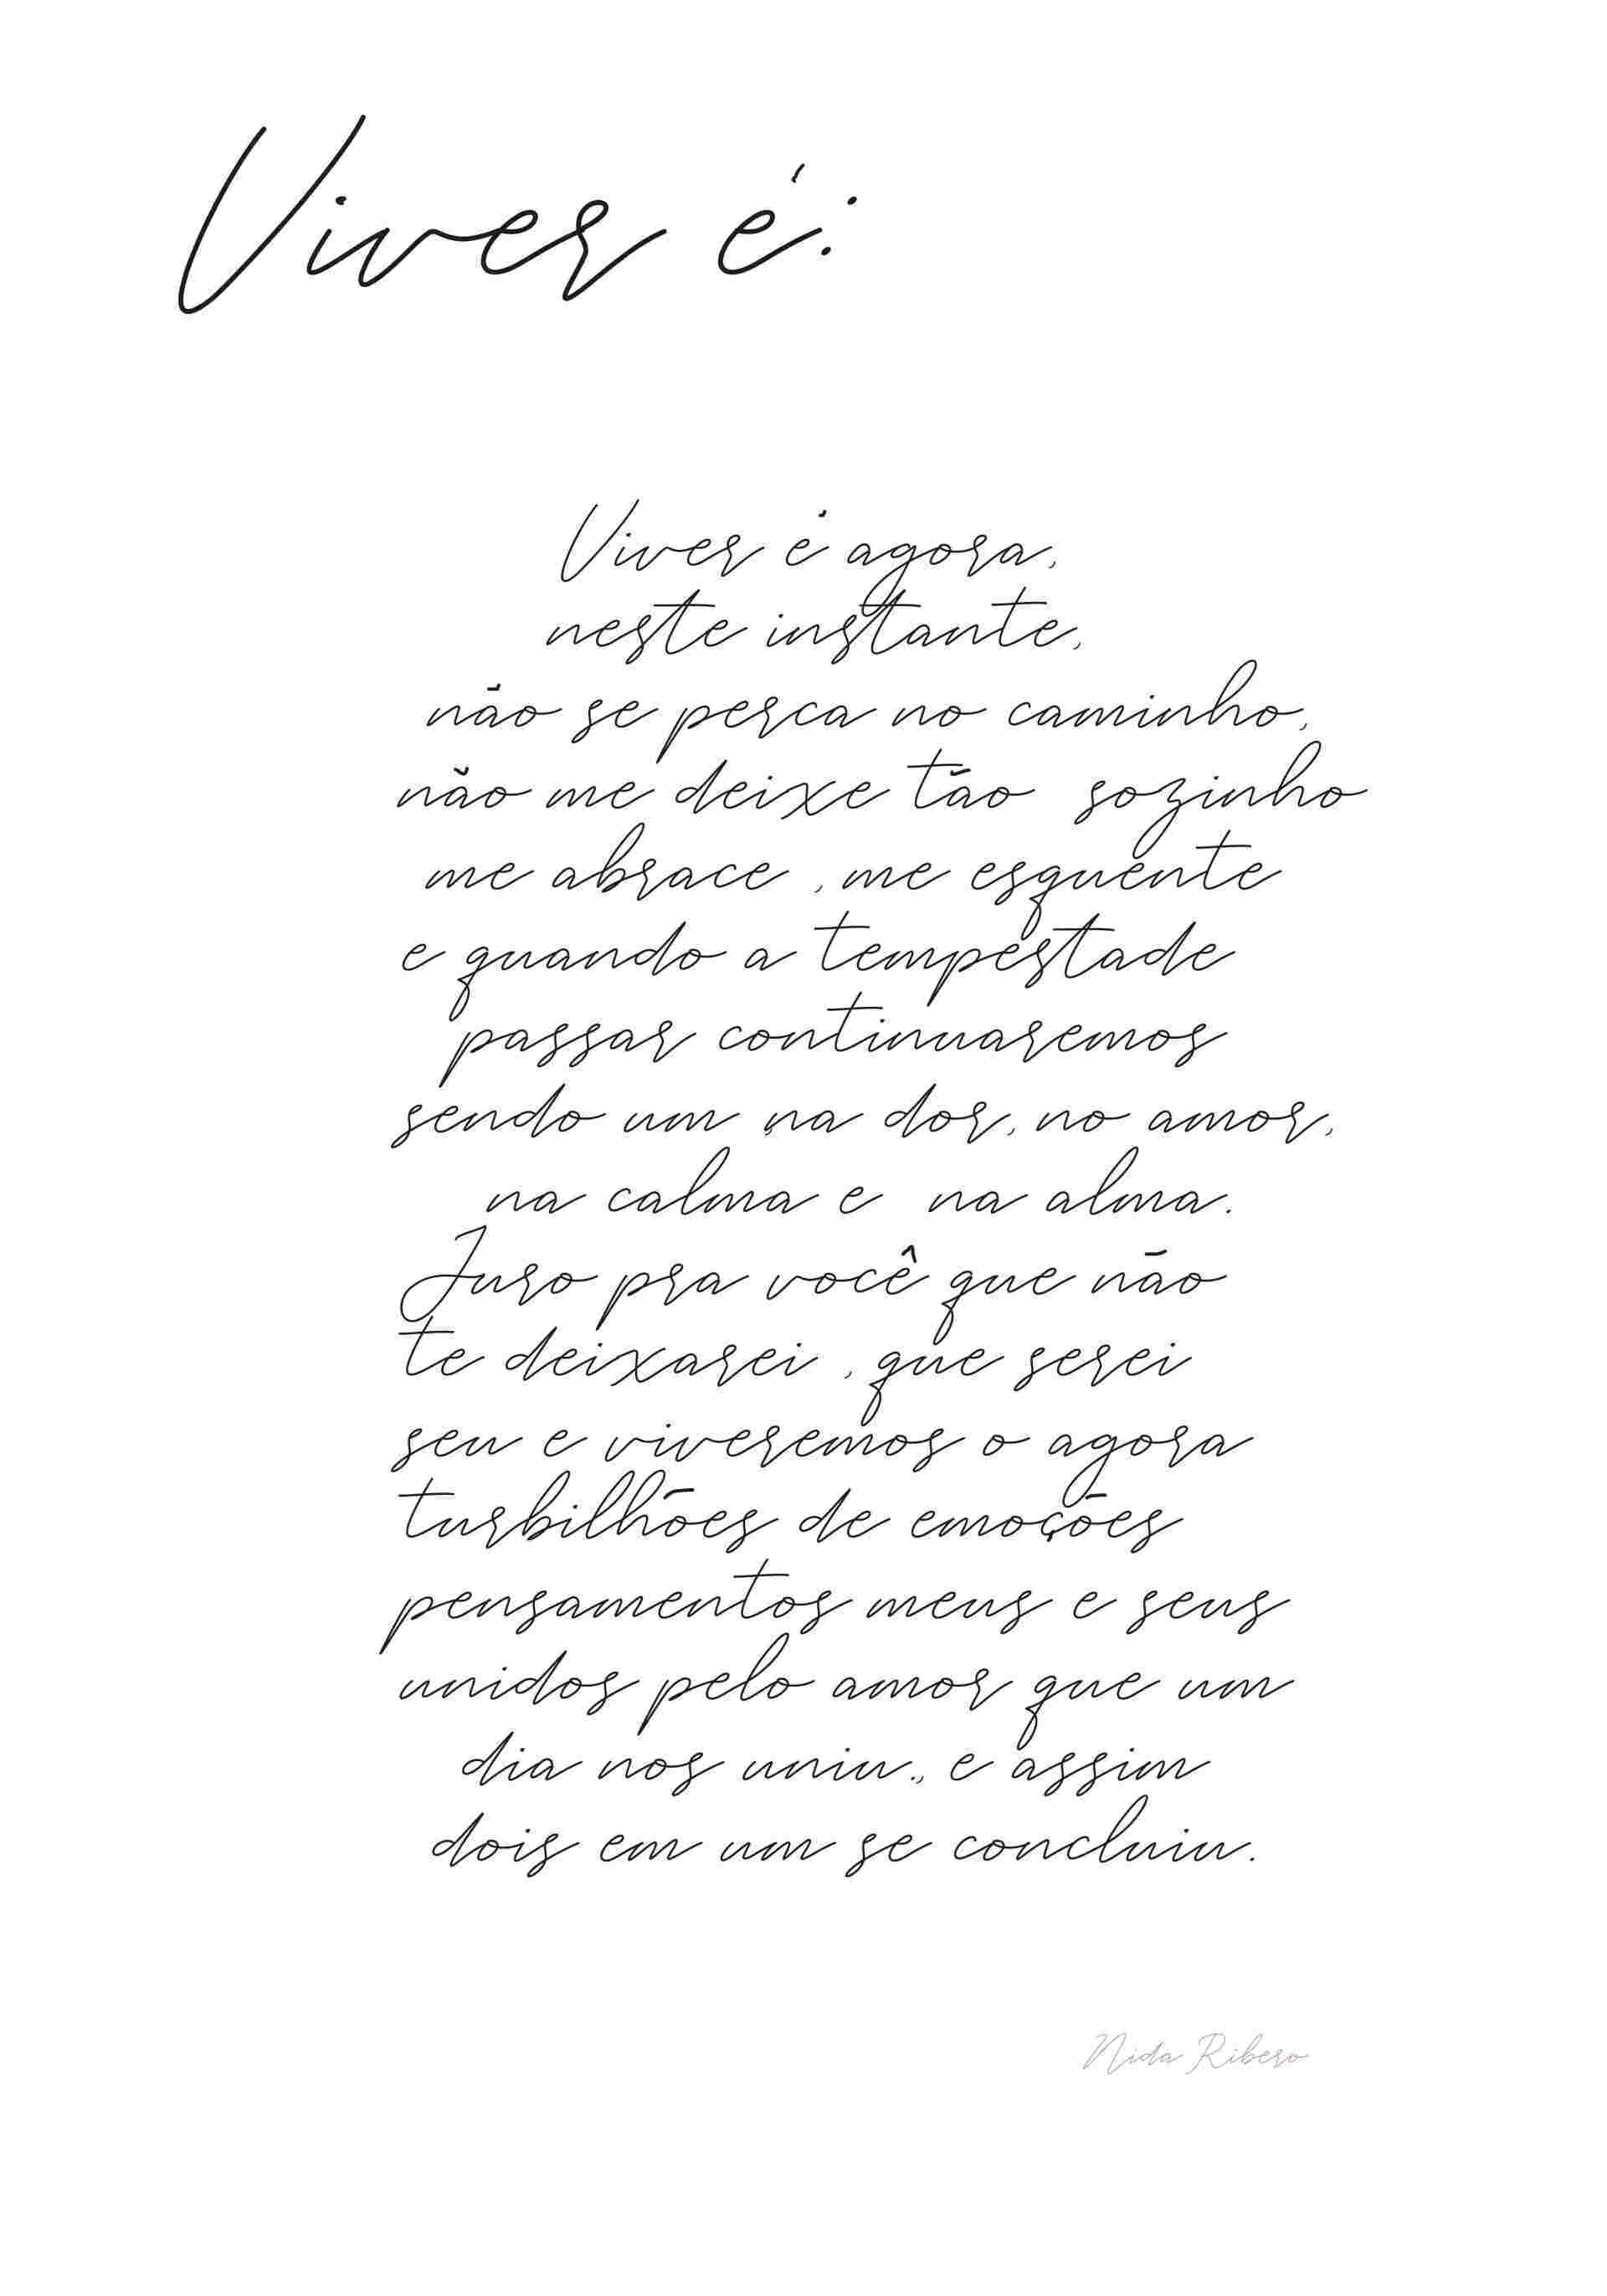 Viver é:
Viver é agora,
neste instante,
não se perca no caminho,
não me deixe tão sozinho
me abrace , me esquente
e quando a tempestade
passar continuaremos
sendo um na dor, no amor,
na calma e na alma.
Juro pra você que não
te deixarei , que serei
seu e viveremos o agora
turbilhões de emoções
pensamentos meus e seus
unidos pelo amor que um
dia nos uniu., e assim
dois em um se concluiu.
Nida Ribero